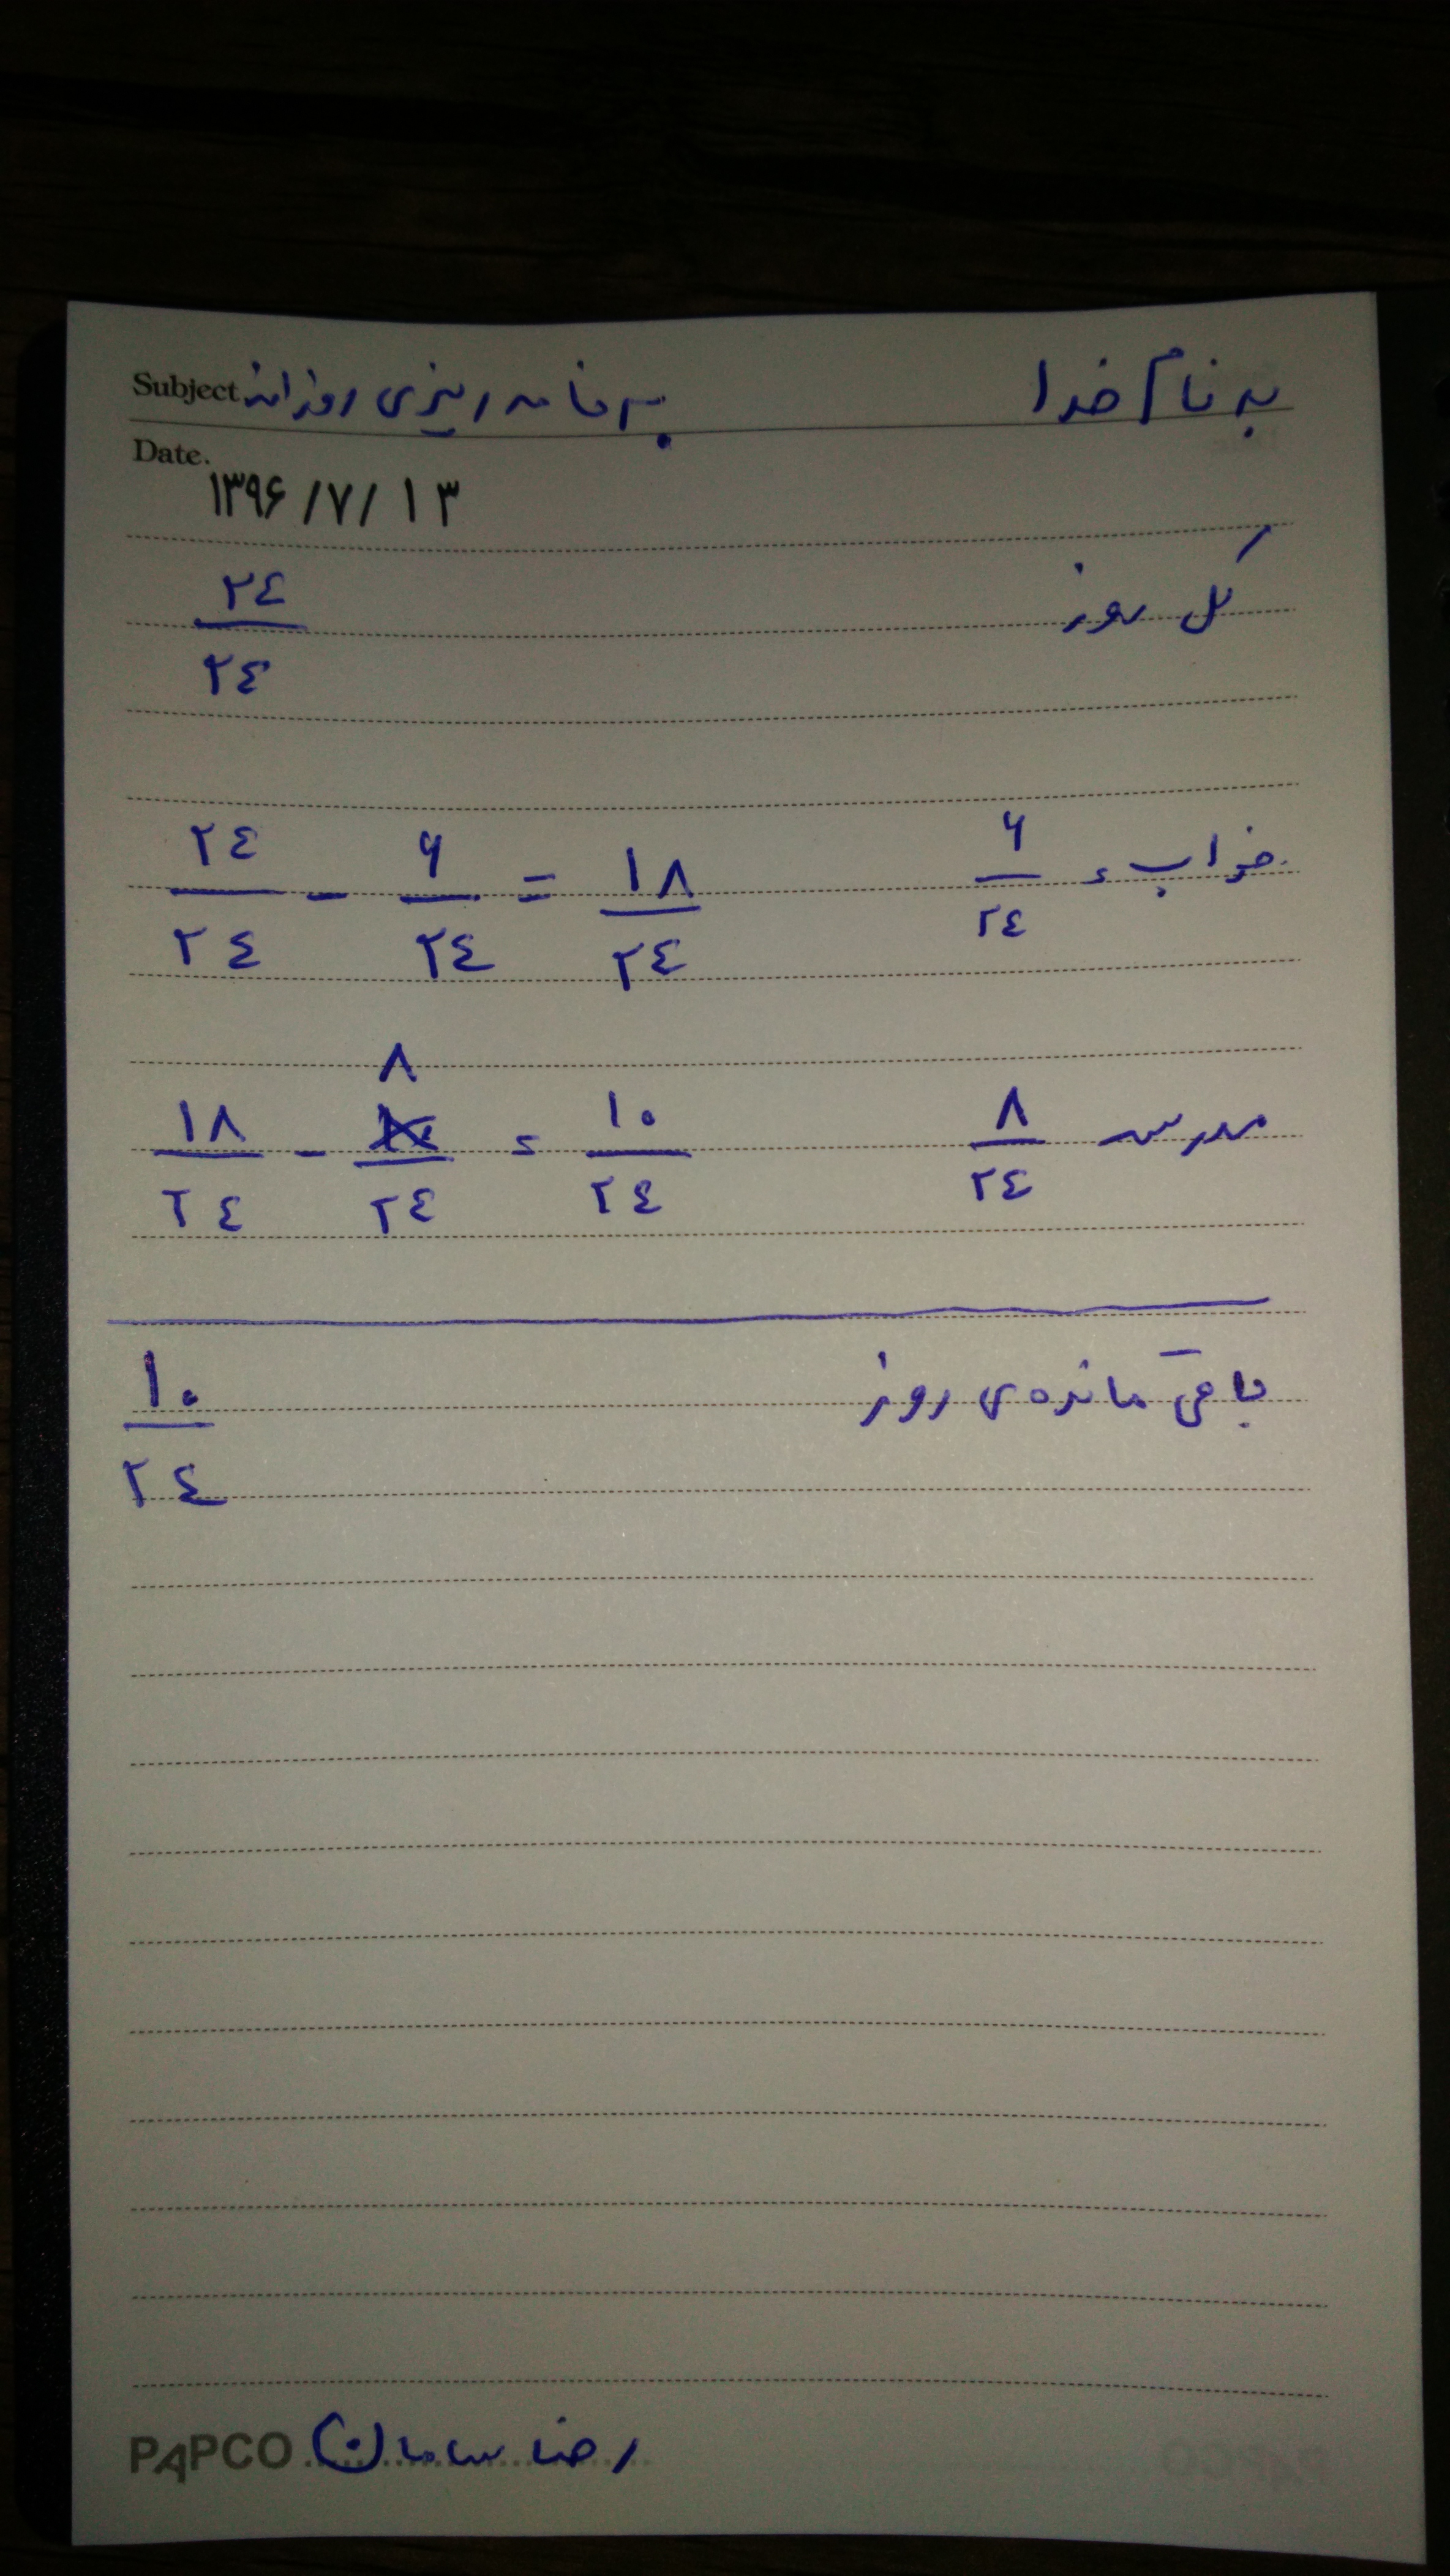 به نام خدا
Subject. برنامه ریزی روزانه
Date.
۱۳۹۶/۷/۱۳
کل روز ۲٤/۲٤
خواب = ۶/۲٤
۲٤/۲٤ - ۶/۲٤ = ۱۸/۲٤
مدرسه ۸/۲٤
۱۸/۲٤ - ۸/۲٤ = ۱۰/۲٤
باقی مانده‌ی روز ۱۰/۲٤
PAPCO رضا